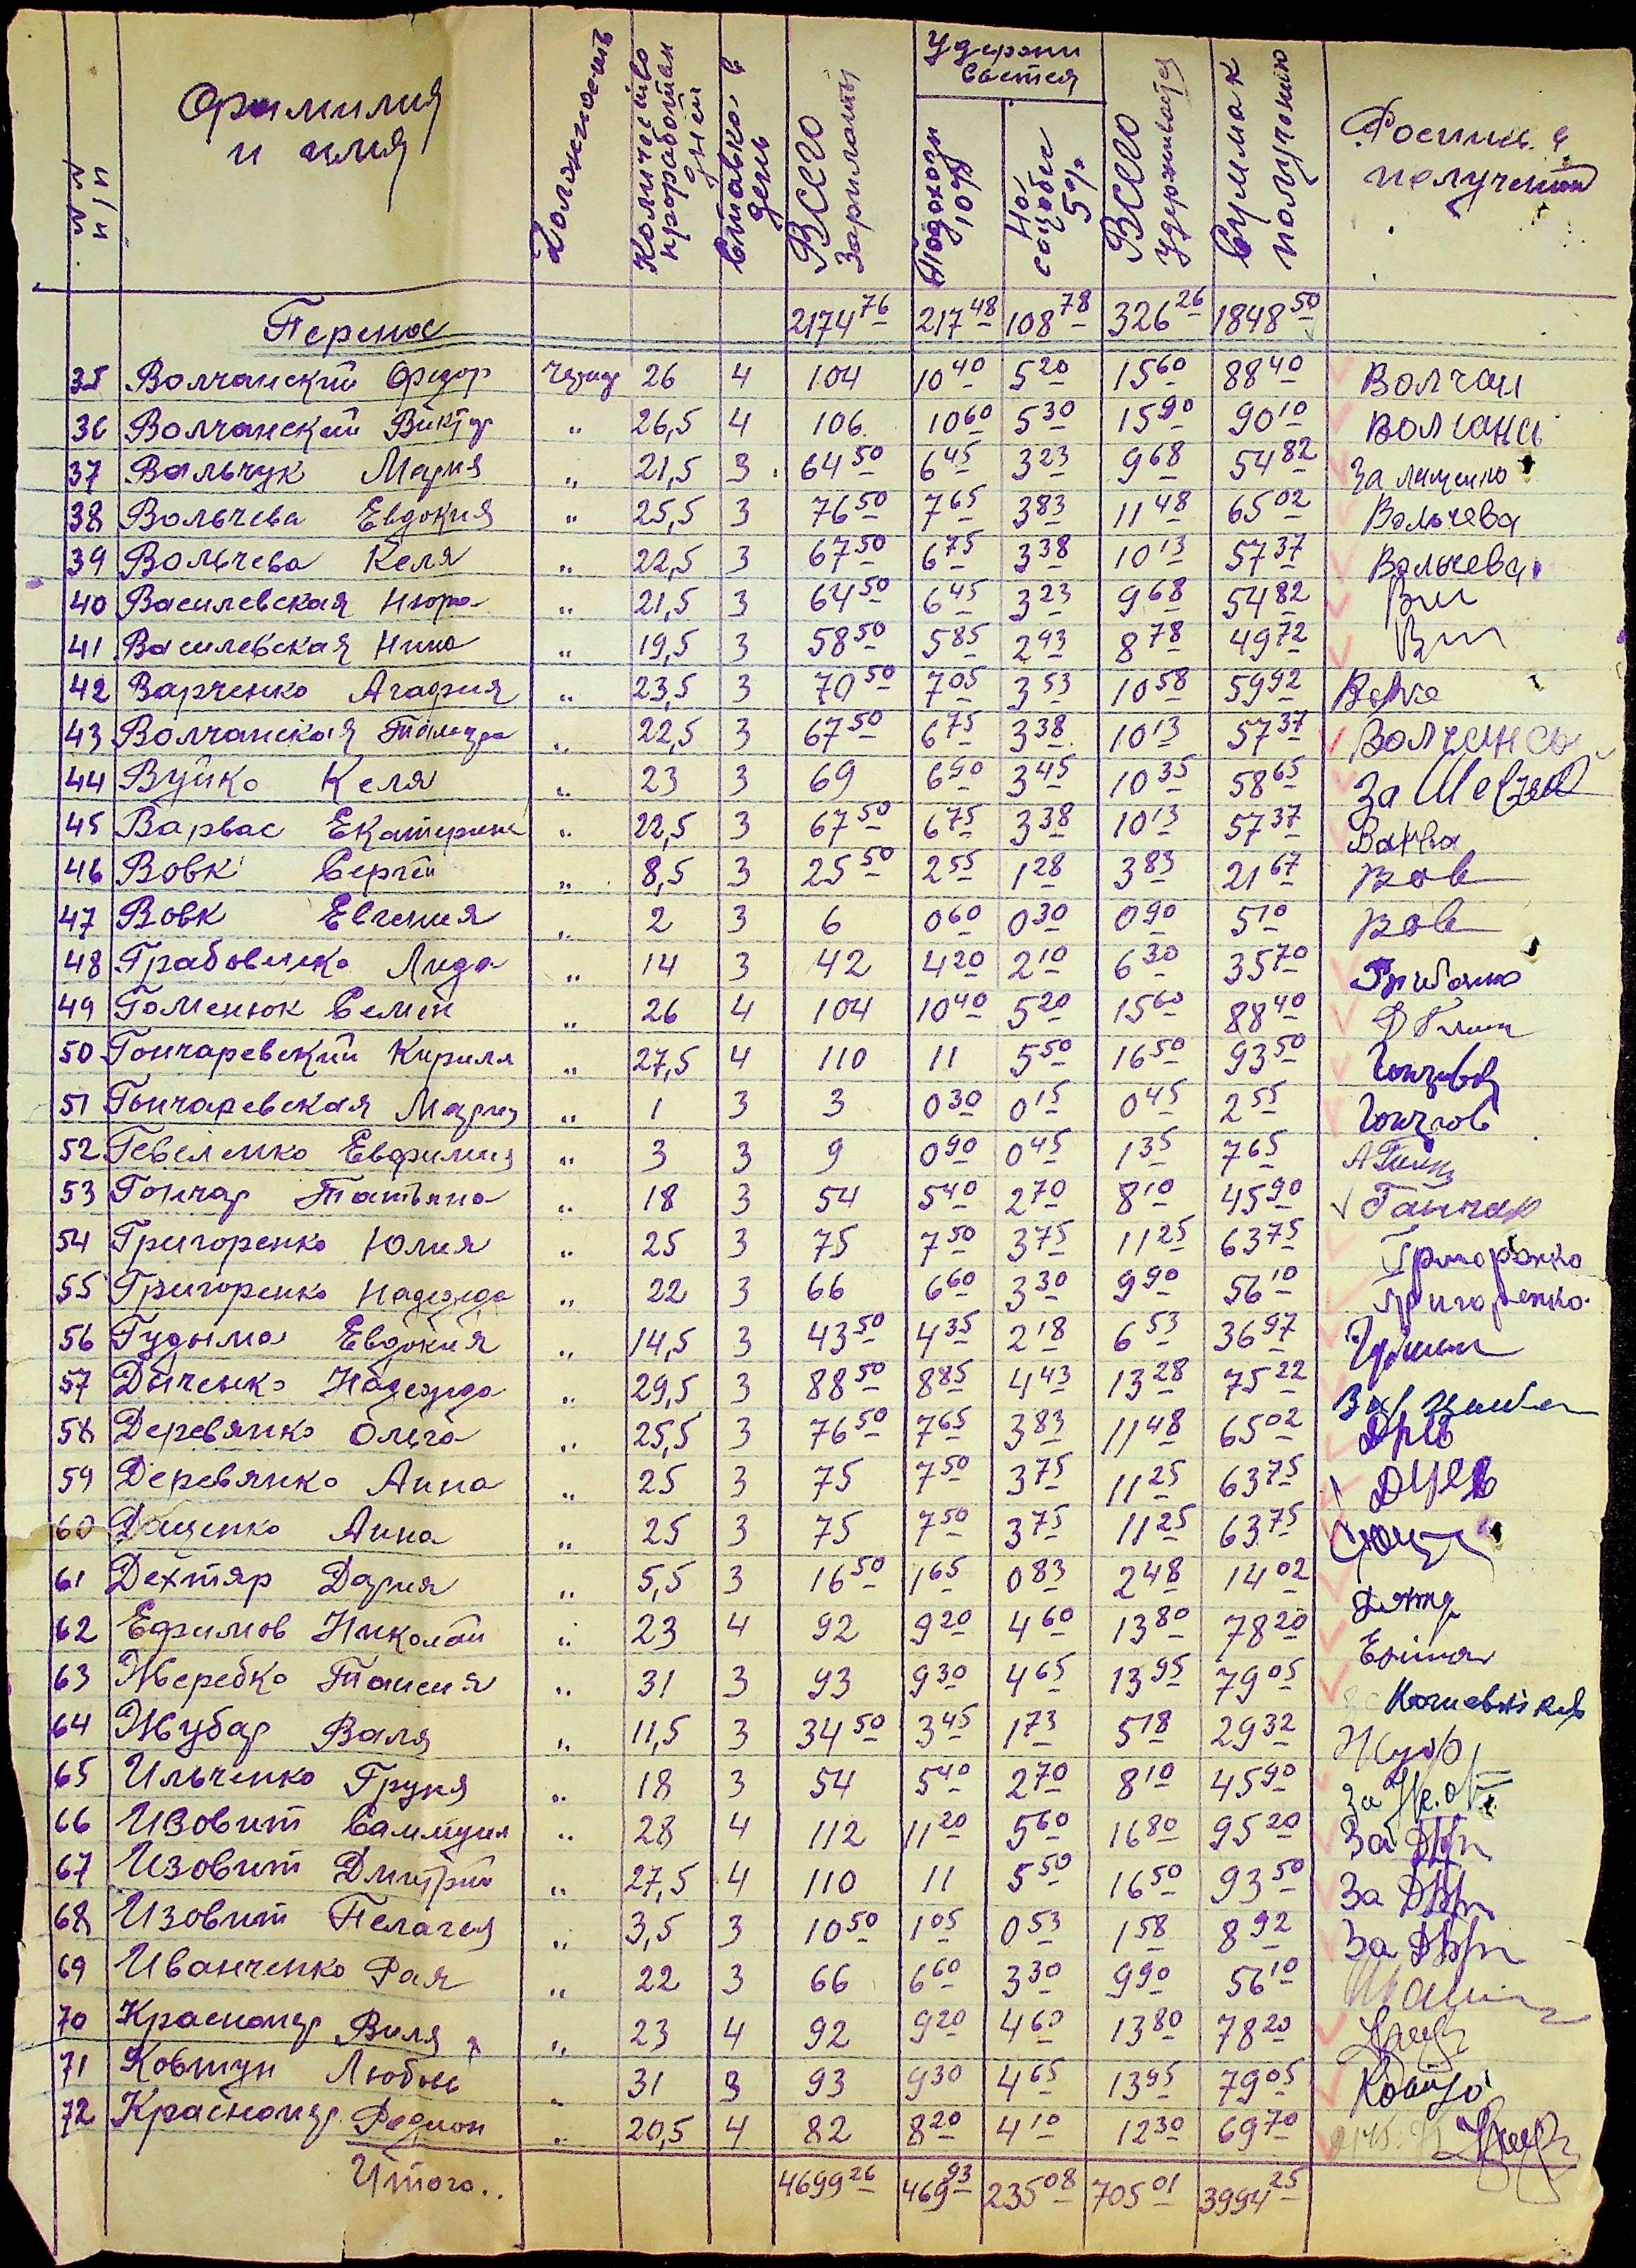 №№ п/п Фамилия и имя Должность Количество проработан дней Ставка в день Всего зарплаты Удержи вается Подоходн 10% соцобес 5% Всего удерживается Сумма к получению Роспись в получении
Перенос 2174 76 217 48 108 78 326 26 1848 50
35 Волчанский Федор 26 4 104 10 40 5 20 15 60 88 40 Волчан
36 Волчанский Виктор " 26,5 4 106 10 60 5 30 15 90 90 10 Волчанс
37 Вальчук Мария " 21,5 3 64 50 6 45 3 23 9 68 54 82 За
38 Вольчева Евдокия " 25,5 3 76 50 7 65 3 83 11 48 65 02 Вольчева
39 Вольчева Келя " 22,5 3 67 50 6 75 3 38 10 13 57 37 Вольчева
40 Василевская Нюра " 21,5 3 64 50 6 45 3 23 9 68 54 82
41 Василевская Нина " 19,5 3 58 50 5 85 2 93 8 78 49 72
42 Варченко Агафия " 23,5 3 70 50 7 05 3 53 10 58 59 92
43 Волчанская Тамара " 22,5 3 67 50 6 75 3 38 10 13 57 37 Волчанс
44 Вуйко Келя " 23 3 69 6 90 3 45 10 35 58 65 За
45 Варвас Екатерина " 22,5 3 67 50 6 75 3 38 10 13 57 37 Варва
46 Вовк Сергей " 8,5 3 25 50 2 55 1 28 3 83 21 67 Вов
47 Вовк Евгения " 2 3 6 0 60 0 30 0 90 5 10 Вов
48 Грабовенко Лида " 14 3 42 4 20 2 10 6 30 35 70
49 Гоменюк Семен " 26 4 104 10 40 5 20 15 60 88 40
50 Гончаревский Кирилл " 27,5 4 110 11 5 50 16 50 93 50
51 Гончаревская Мария " 1 3 3 0 30 0 15 0 45 2 55
52 Евфимия " 3 3 9 0 90 0 45 1 35 7 65
53 Гончар Татьяна " 18 3 54 5 40 2 70 8 10 45 90 Ганчар
54 Григоренко Юлия " 25 3 75 7 50 3 75 11 25 63 75 Григоренко
55 Григоренко Надежда " 22 3 66 6 60 3 30 9 90 56 10 Григоренко
56 Гудыма Евдокия " 14,5 3 43 50 4 35 2 18 6 53 36 97
57 Дьяченко Надежда " 29,5 3 88 50 8 85 4 43 13 28 75 22
58 Деревянко Ольга " 25,5 3 76 50 7 65 3 83 11 48 65 02
59 Деревянко Анна " 25 3 75 7 50 3 75 11 25 63 75
60 Даценко Анна " 25 3 75 7 50 3 75 11 25 63 75
61 Дехтяр Дария " 5,5 3 16 50 1 65 0 83 2 48 14 02
62 Ефимов Николай " 23 4 92 9 20 4 60 13 80 78 20
63 Жеребко Таисия " 31 3 93 9 30 4 65 13 95 79 05
64 Жубар Валя " 11,5 3 34 50 3 45 1 73 5 18 29 32
65 Ильченко Груня " 18 3 54 5 40 2 70 8 10 45 90 За
66 Изовит " 28 4 112 11 20 5 60 16 80 95 20 За
67 Изовит Дмитрий " 27,5 4 110 11 5 50 16 50 93 50 За
68 Изовит Пелагея " 3,5 3 10 50 1 05 0 53 1 58 8 92 За
69 Иванченко Фая " 22 3 66 6 60 3 30 9 90 56 10
70 Краснощр Виля " 23 4 92 9 20 4 60 13 80 78 20
71 Ковтун Любовь " 31 3 93 9 30 4 65 13 95 79 05
72 Краснощр Родион " 20,5 4 82 8 20 4 10 12 30 69 70
Итого.. 4699 26 469 93 235 08 705 01 3994 25